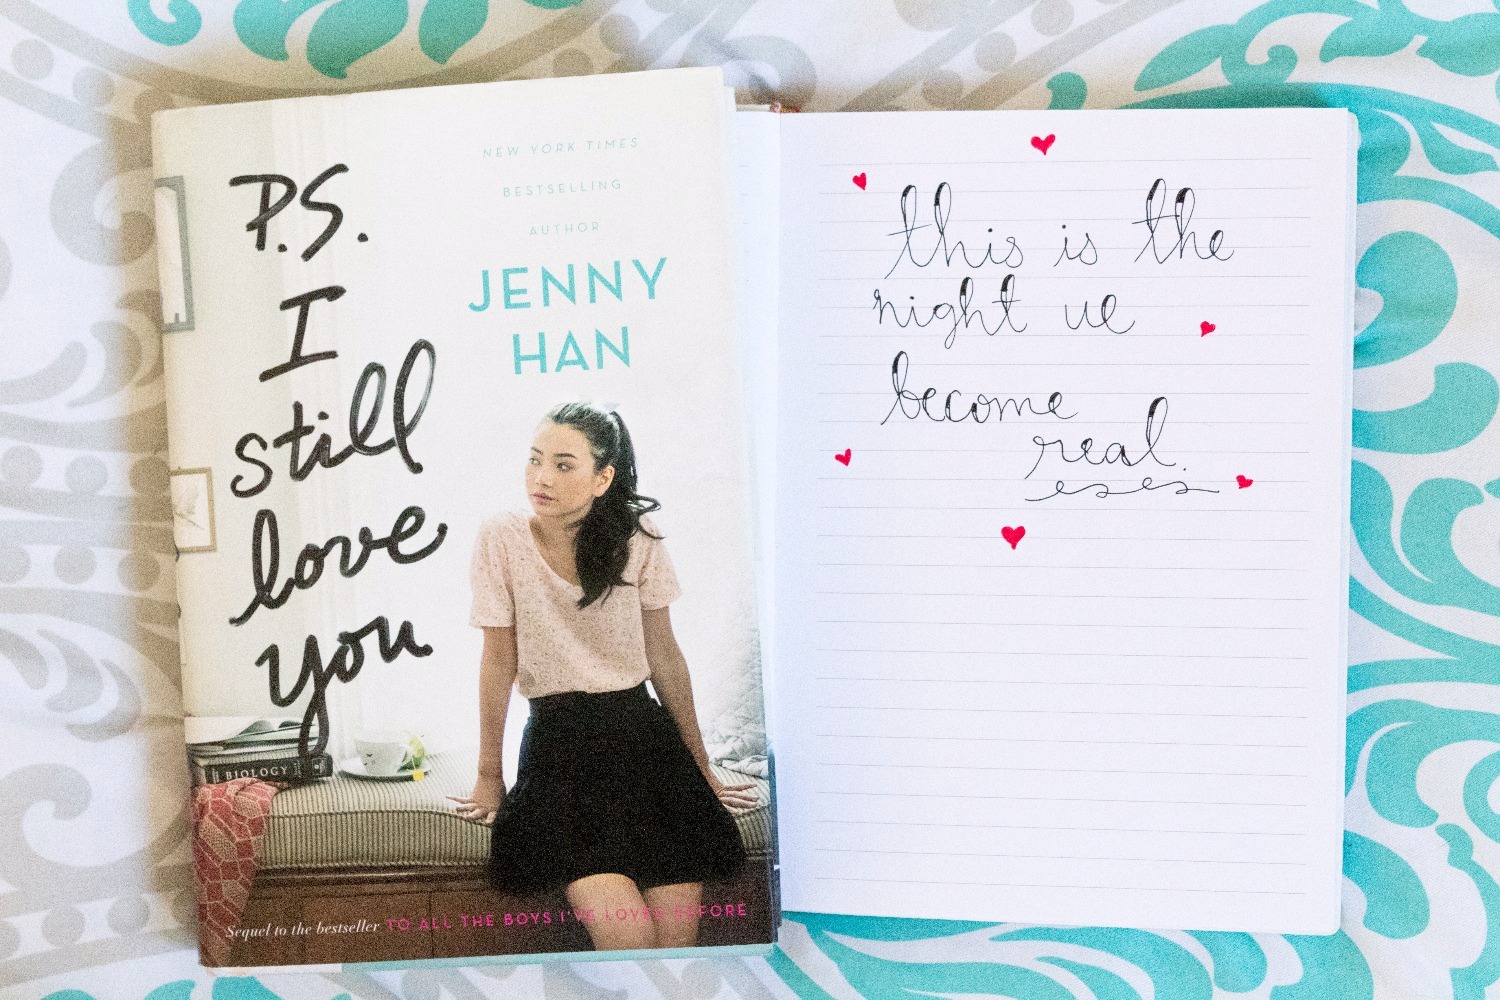 P.S.
I
still
love
you
NEW YORK TIMES
BESTSELLING
AUTHOR
JENNY
HAN
BIOLOGY
Sequel to the bestseller TO ALL THE BOYS I'VE LOVED BEFORE
this is the
night we
become
real.